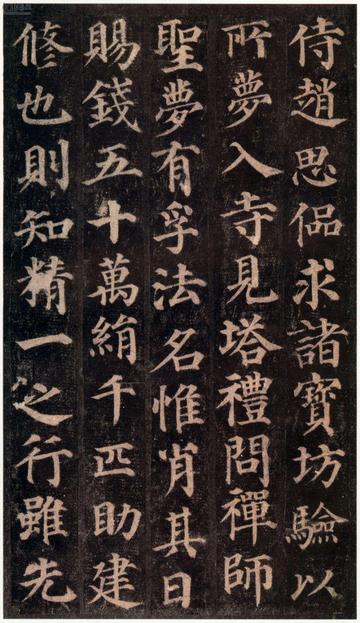 侍趙思侷求諸寶坊驗以
所夢入寺見塔禮問禪師
聖夢有孚法名惟肖其日
賜錢五十萬絹千匹助建
修也則知精一之行雖先